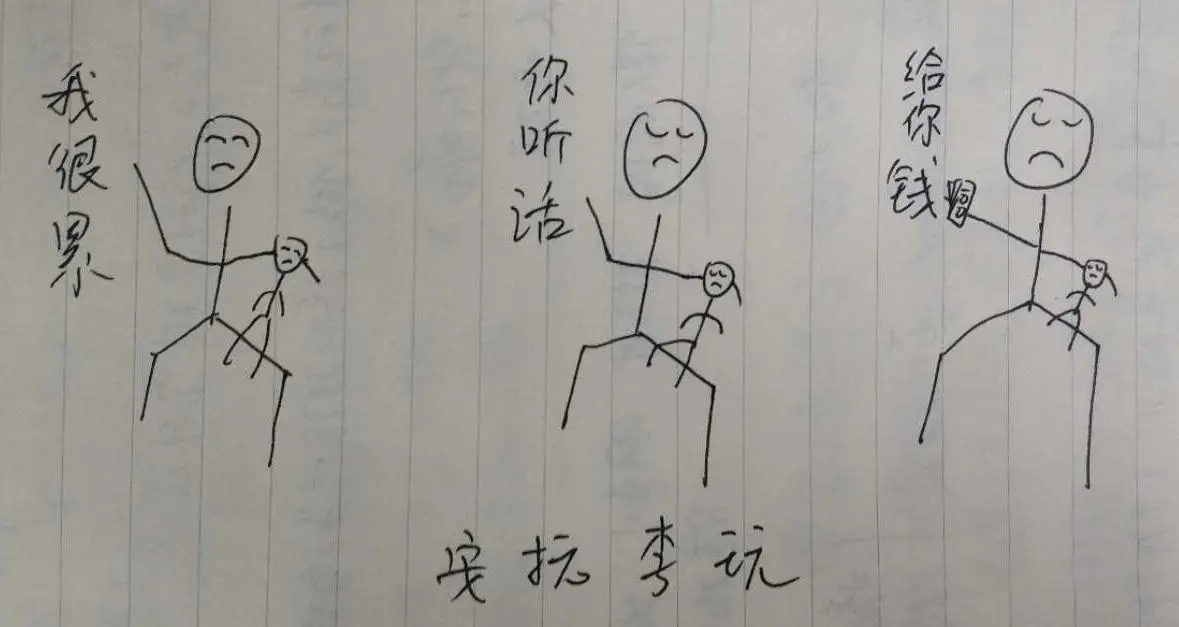 我很累
你听话
给你钱
安抚李玩